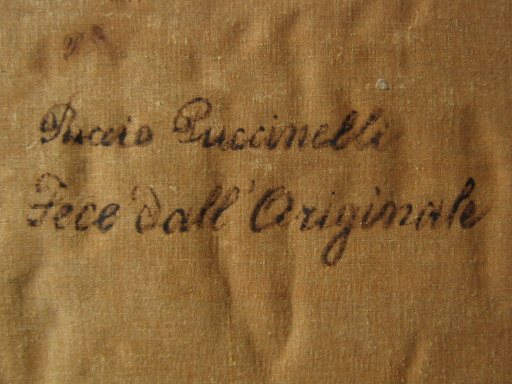 Puccio Puccinelli
Fece dall' Originale